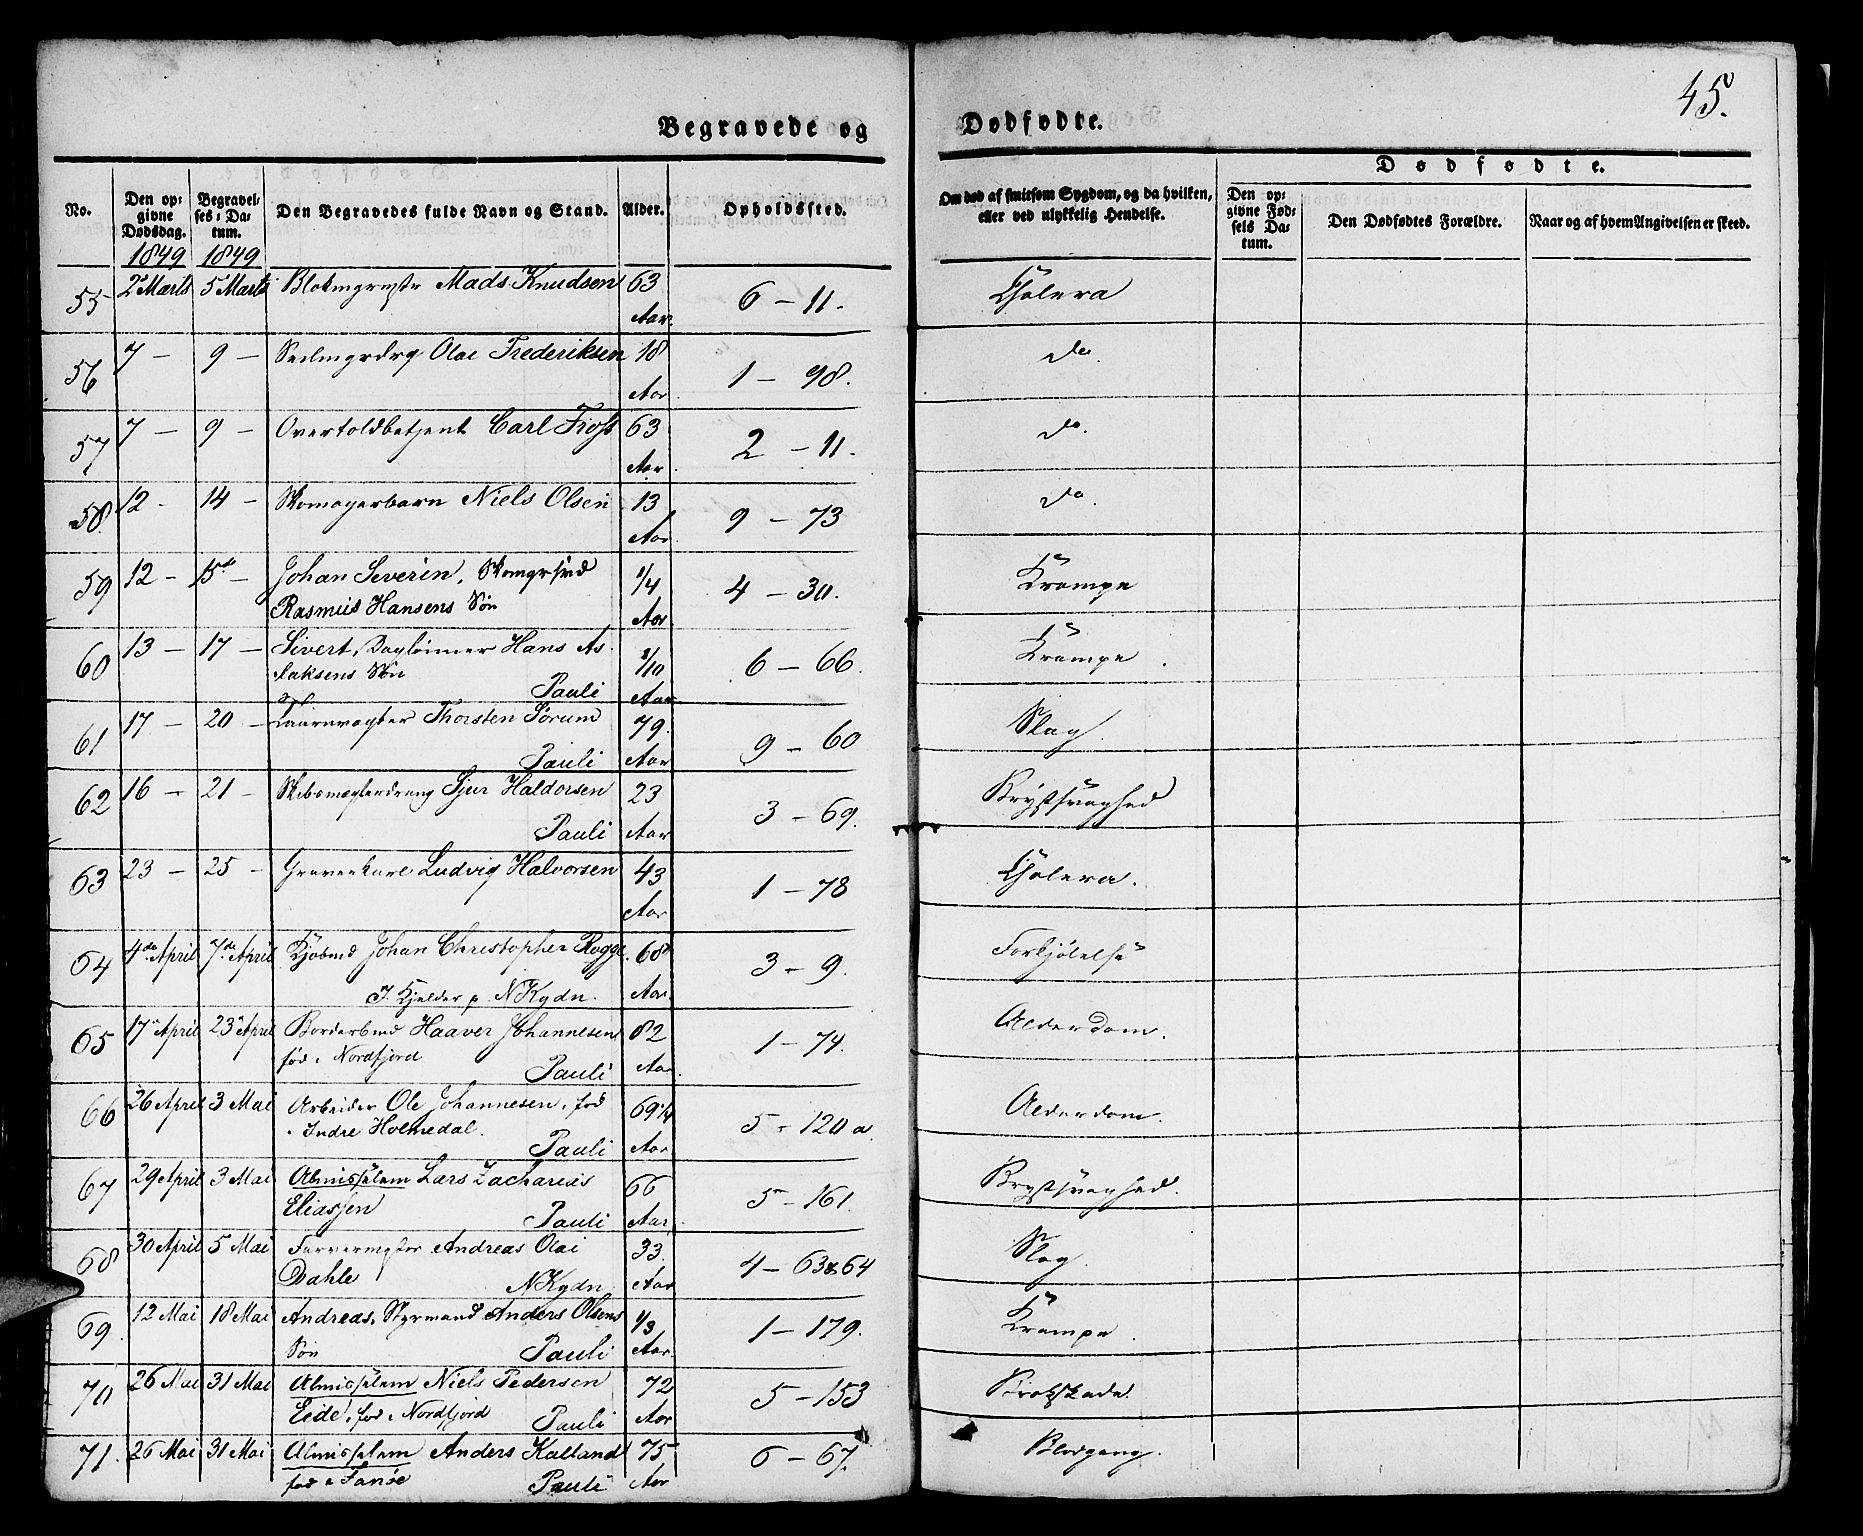 45.
Begravede og Dødfødte.
Dødfødte.
No.
Den opgivne Dødsdag.
Begravelses-Datum.
Den Begravedes fulde Navn og Stand.
Alder.
Opholdssted.
Om død af smitsom Sygdom, og da hvilken, eller ved ulykkelig Hendelse.
Den opgivne Fødsels Datum.
Den Dødfødtes Forældre.
Naar og af hvem Angivelsen er skeed.
1849 1849
55 2 Marts 5 Marts Blokmgrmstr Mads Knudsen 63 Aar. 6 – 11. Cholera
56 7 – 9 – Seilmgrdrg Olai Frederiksen 18 Aar. 1 – 98. do.
57 7 – 9 – Overtoldbetjent Carl Frost 63 Aar. 2 – 11. do.
58. 12 - 14 – Skomagerbarn Niels Olsen 13 Aar 9 – 73 do.
59 12 – 15de – Johan Severin, Skomgrsvd 1/4 4 – 30. Krampe
Rasmus Hansens Søn Aar
60 13 – 17 – Sivert, Dagleiner Hans As- /10 6 – 66. Krampe.
laksens Søn Pauli Aar
61 17 – 20 – Taarnvægter Thorsten Sørum 79. 9 – 60 Slag.
Pauli Aar
62 16 – 21 – Skibsmæglerdreng Sjur Haldorsen 23 3 – 69. Brystsvaghed
Pauli Aar
63 23 – 25 - Graverkarl Ludvig Halvorsen 43 Aar 1 – 78 Cholera.
64 4de April 7de April Kjøbmd Johan Christopher Rogge. 68 3 – 9. Forkjølelse
J. Kjelder p. N Kgdn. Aar.
65 17 April 23 April Borderbmd Haaver Johannesen 82 1 – 74. Alderdom.
fød i Nordfjord Pauli Aar
66 26 April 3 Mai Arbeider Ole Johannesen, fød 69 1/4 5 - 120 a. Alderdom.
i Indre Holmedal. Pauli Aar
67 29 April 3 Mai Almisselem Lars Zacharias 66 5 – 161. Brystsvaghed.
Eliassen Pauli Aar.
68 30 April 5 Mai Farvermester Andreas Olai 33. 4 – 63 & 64 Slag.
Dahle N Kgdn. Aar
69. 12 Mai 18 Mai Andreas, Styrmand Anders Olsens 1/3 1 – 179. Krampe.
Søn Pauli Aar.
70 26 Mai 31 Mai Almisselem Niels Pedersen 72 5 – 153
Eide, fød i Nordfjord Pauli Aar
71. 26 Mai 31 Mai Almisselem Anders Kalland 75 6 – 67. Blodgang.
fød i Fanøe Pauli Aar